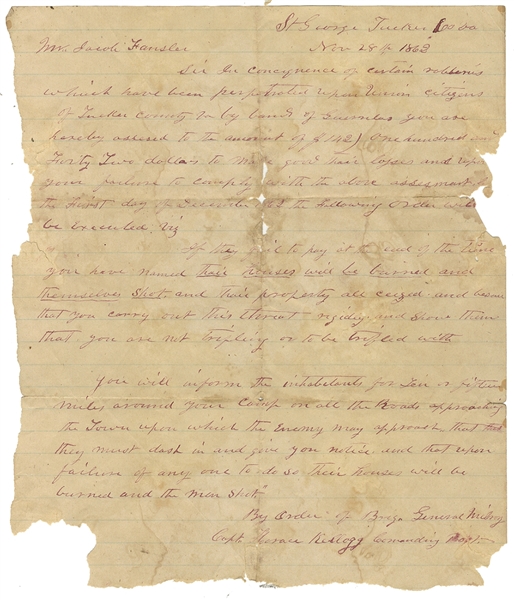 St George Tucker Co va
Mr. Jacob Fansler Nov 28th 1862
Sir In conceqnence of certain roberies
which have been perpetrated upon Union citizens
of Tucker county va by bands of Guerrilas you are
hereby assesed to the amount of $ 142) One hundred and
Forty Two dollars to make good their losses and upon
your failure to comply with the above assesment by
the First day of December the Following order will
be executed viz
If they fail to pay at the end of the time
you have named their houses will be burned and
themselves shot. and their property all ceized and
that you carry out this thereat rigidly and show them
that you are not trifling or to be trifled with
You will inform the inhabetants for Ten or fifteen
miles around your Camp on all the Roads approaching
the Town upon which the Enemy may approach that
they must dash in and give you notice and that upon
failior of any one to do so their houses will be
burned and the Men Shot"
By Order of Briga General Milroy
Capt. Horace Kellogg Comanding Post.